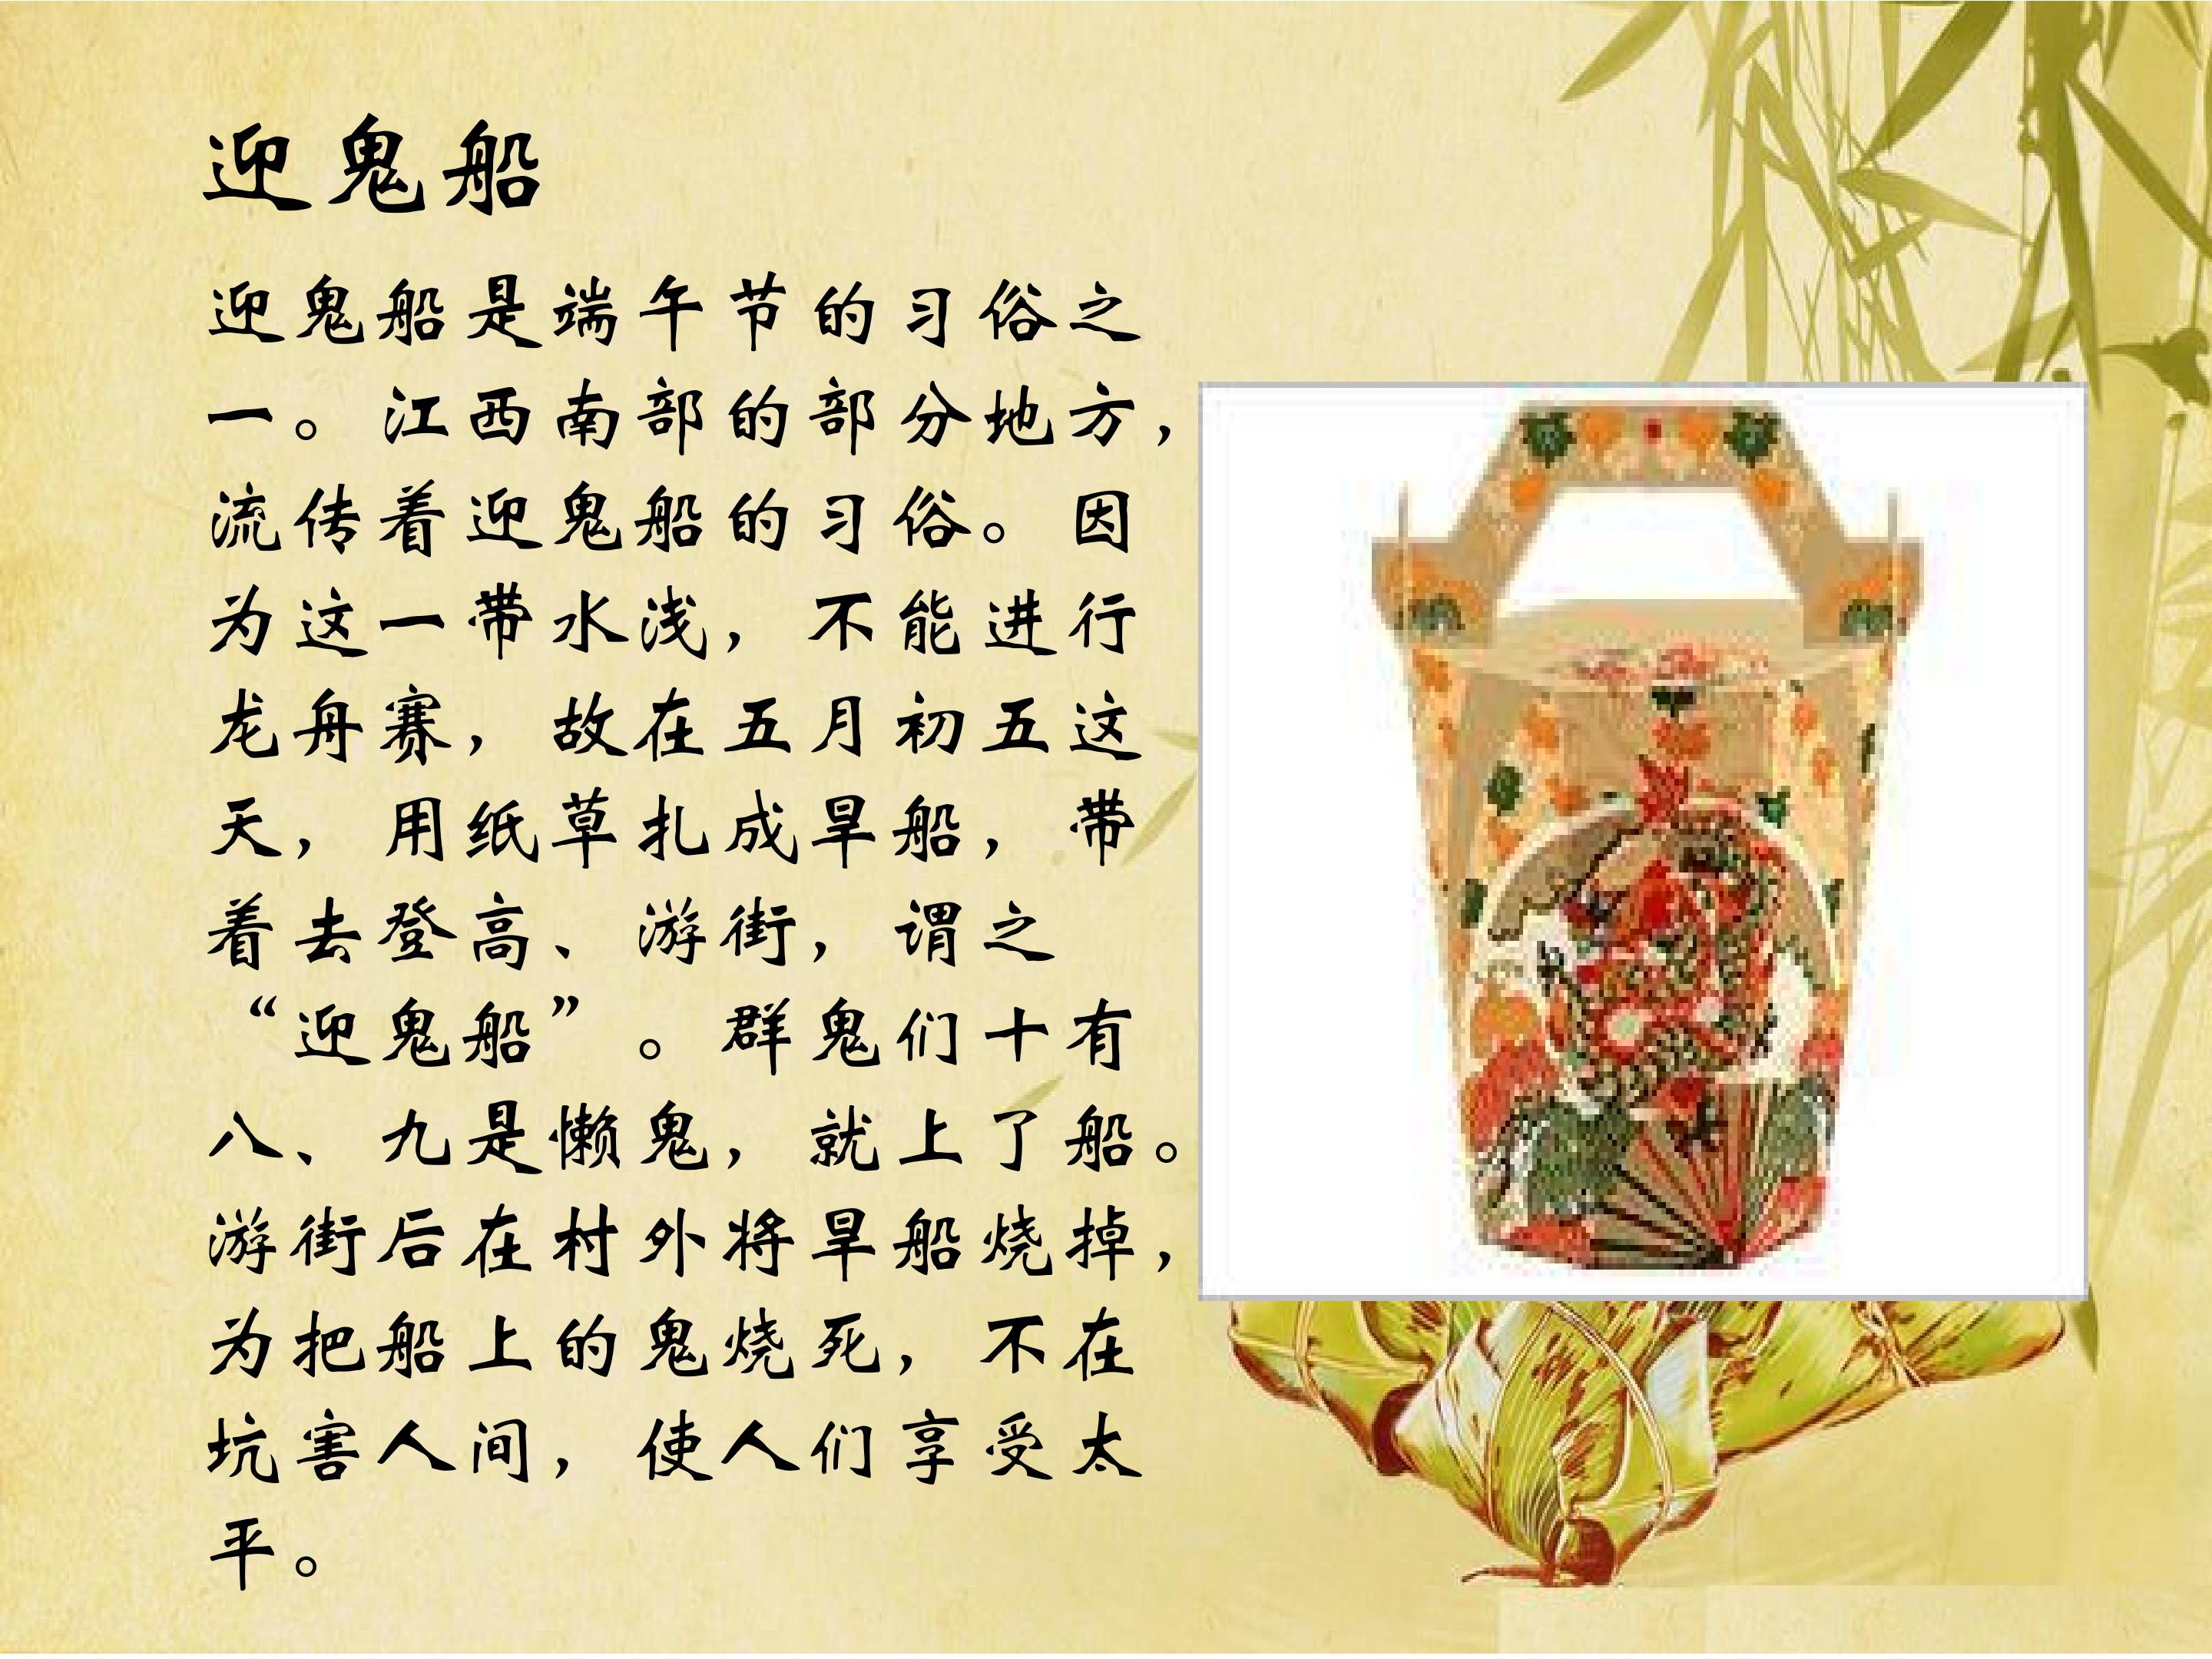 迎鬼船
迎鬼船是端午节的习俗之
一。江西南部的部分地方，
流传着迎鬼船的习俗。因
为这一带水浅，不能进行
龙舟赛，故在五月初五这
天，用纸草扎成旱船，带
着去登高、游街，谓之
“迎鬼船”。群鬼们十有
八、九是懒鬼，就上了船。
游街后在村外将旱船烧掉，
为把船上的鬼烧死，不在
坑害人间，使人们享受太
平。